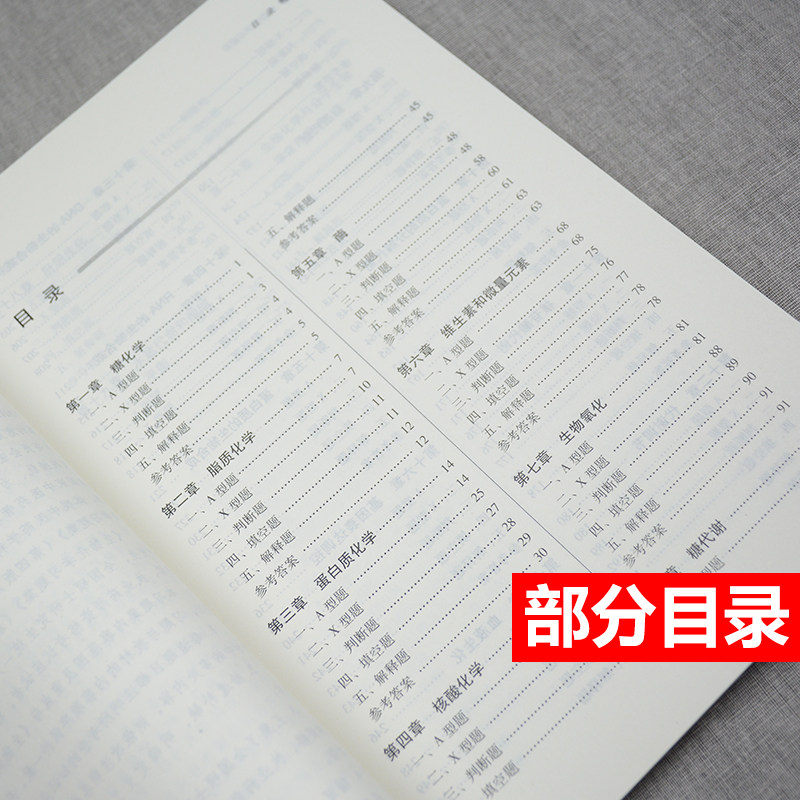 目录
目 录
第一章 糖化学 1
一、A 型题 1
二、X 型题 3
三、判断题 4
四、填空题 4
五、解释题 5
参考答案 5
第二章 脂质化学 7
一、A 型题 7
二、X 型题 10
三、判断题 11
四、填空题 11
五、解释题 12
参考答案 12
第三章 蛋白质化学 14
一、A 型题 14
二、X 型题 25
三、判断题 27
四、填空题 28
五、解释题 29
参考答案 30
第四章 核酸化学
一、A 型题
二、X 型题
三、判断题
四、填空题
五、解释题 45
参考答案 45
第五章 酶 48
一、A 型题 48
二、X 型题 58
三、判断题 60
四、填空题 61
五、解释题 63
参考答案 63
第六章 维生素和微量元素 68
一、A 型题 68
二、X 型题 75
三、判断题 76
四、填空题 77
五、解释题 78
参考答案 78
第七章 生物氧化 81
一、A 型题 81
二、X 型题 88
三、判断题 89
四、填空题 90
五、解释题 91
参考答案 91
章 糖代谢
型题
部分目录